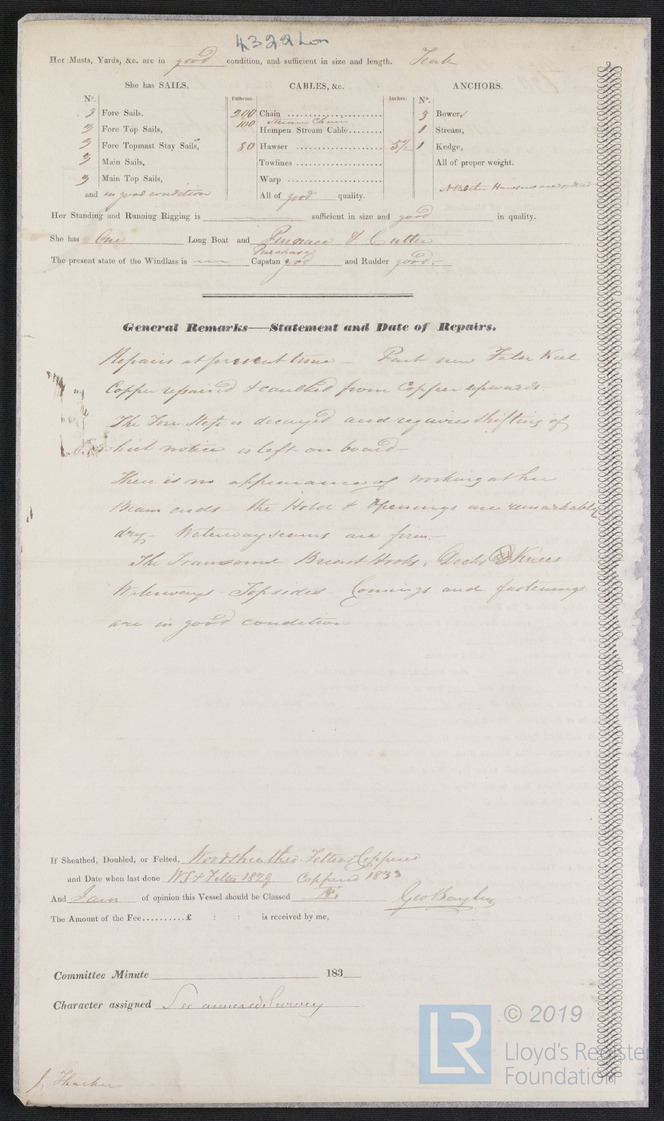 4322 Lon
Her Masts, Yards, &c. are in good condition, and sufficient in size and length. Teak
She has SAILS. CABLES, &c. ANCHORS.
N°. Fathoms. Inches. N°.
3 Fore Sails, 200 Chain 3 Bowers
3 Fore Top Sails, 100 Stream Chain Hempen Stream Cable 1 Stream,
3 Fore Topmast Stay Sails, 80 Hawser 5½ 1 Kedge,
3 Main Sails, Towlines All of proper weight.
3 Main Top Sails, Warp
and in good condition All of good quality.
Her Standing and Running Rigging is sufficient in size and good in quality.
She has One Long Boat and Pinnace & Cutter
The present state of the Windlass is Capstan Purchase good and Rudder good.
General Remarks—Statement and Date of Repairs.
Repairs at present time - Part new False Keel
Copper repaired & caulked from Copper upwards.
The Fore Step is decayed and requires shifting of
which notice is left on board -
There is no appearance of working at her
Beam ends - the Hold & Openings are remarkably
dry - Waterway seams are firm.
The Transoms Breast Hooks, Decks & Knees
Waterways - Topsides and fastenings
are in good condition
If Sheathed, Doubled, or Felted, Wood sheathed Felted & Coppered
and Date when last done WS & Felt 1829 Coppered 1833
And I am of opinion this Vessel should be Classed
Geo Bayley
The Amount of the Fee..........£ : : is received by me,
Committee Minute 183
Character assigned See annexed Survey
J. Thacker
LR © 2019
Lloyd's Register
Foundation